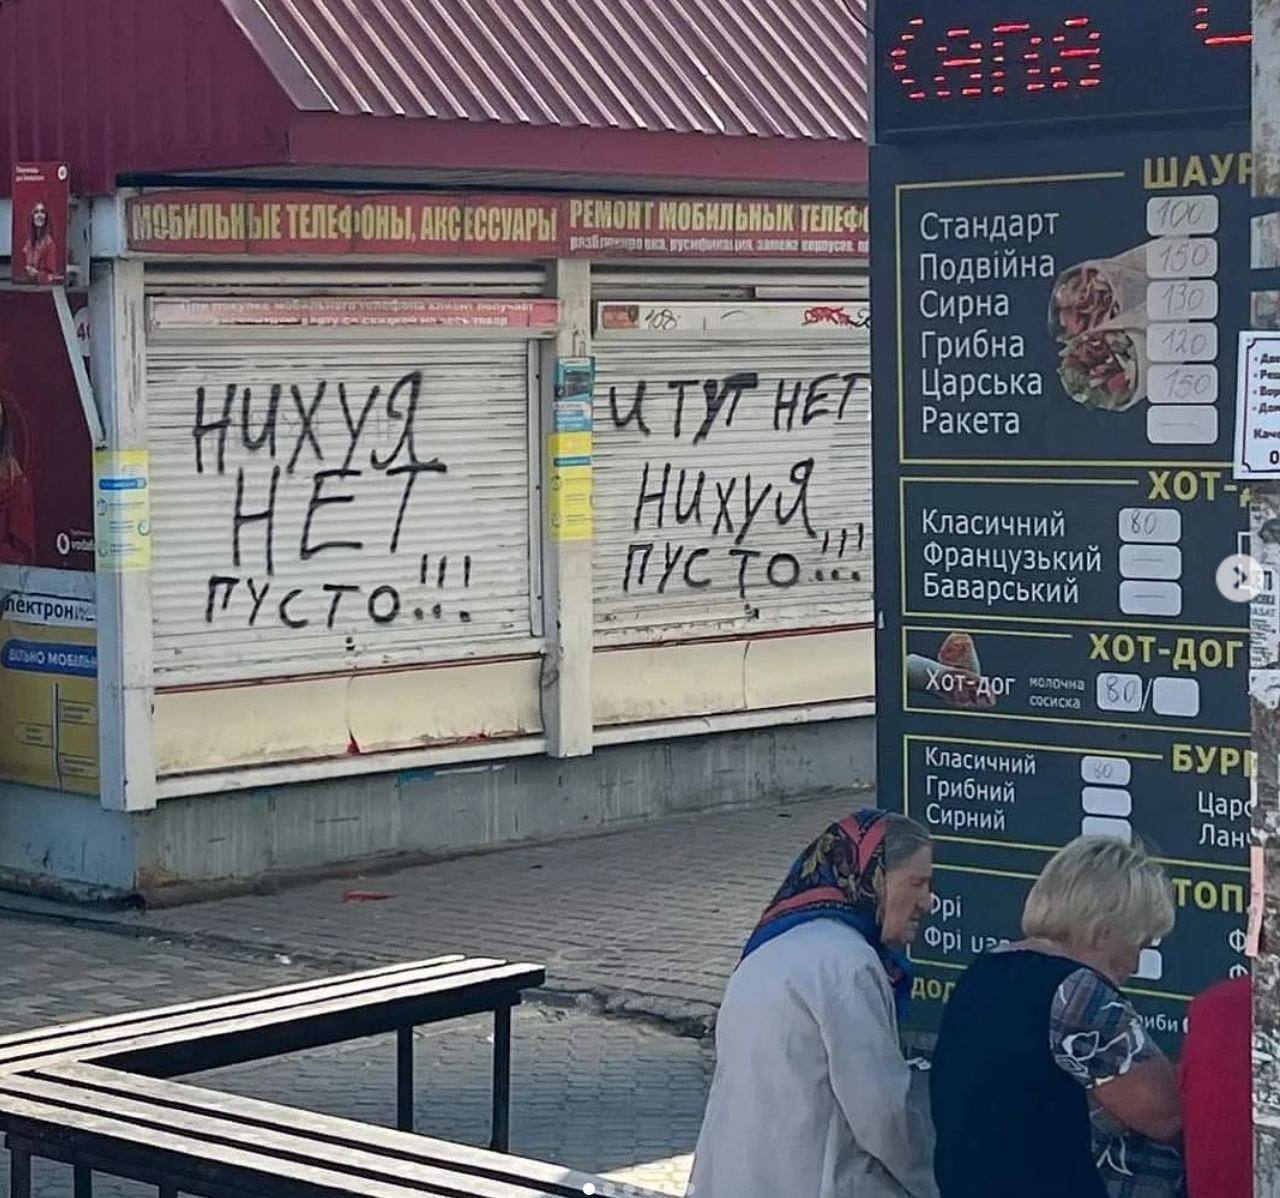 МОБИЛЬНЫЕ ТЕЛЕФОНЫ, АКСЕССУАРЫ
РЕМОНТ МОБИЛЬНЫХ ТЕЛЕФ
При покупке мобильного телефона клиент получает
НИХУЯ
НЕТ
ПУСТО!!!
И ТУТ НЕТ
НИХУЯ
ПУСТО!!!
ШАУР
Стандарт 100
Подвійна 150
Сирна 130
Грибна 120
Царська 150
Ракета
ХОТ-
Класичний 80
Французький
Баварський
ХОТ-ДОГ
Хот-дог молочна сосиска 80/
БУРГ
Класичний 80
Грибний
Сирний
Царс
Ланч
ТОП
Фрі
Фрі